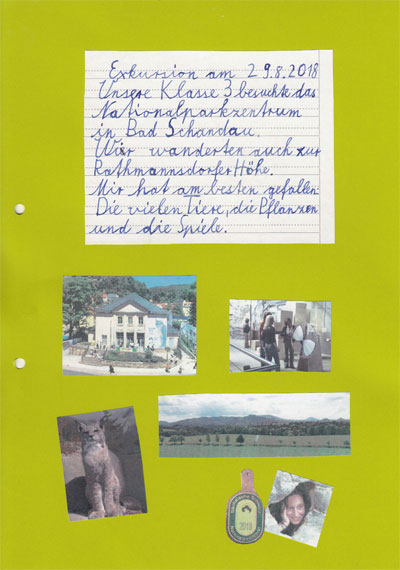 Exkursion am 29.8.2018
Unsere Klasse 3 besuchte das
Nationalparkzentrum
in Bad Schandau.
Wir wanderten auch zur
Rathmannsdorfer Höhe.
Mir hat am besten gefallen:
Die vielen Tiere, die Pflanzen
und die Spiele.
2018